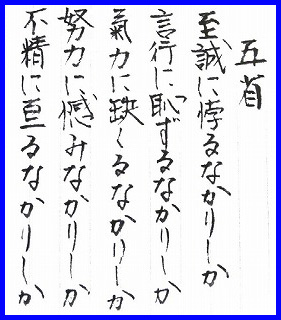 五省
至誠に悖るなかりしか
言行に恥ずるなかりしか
氣力に缺くるなかりしか
努力に憾みなかりしか
不精に亘るなかりしか